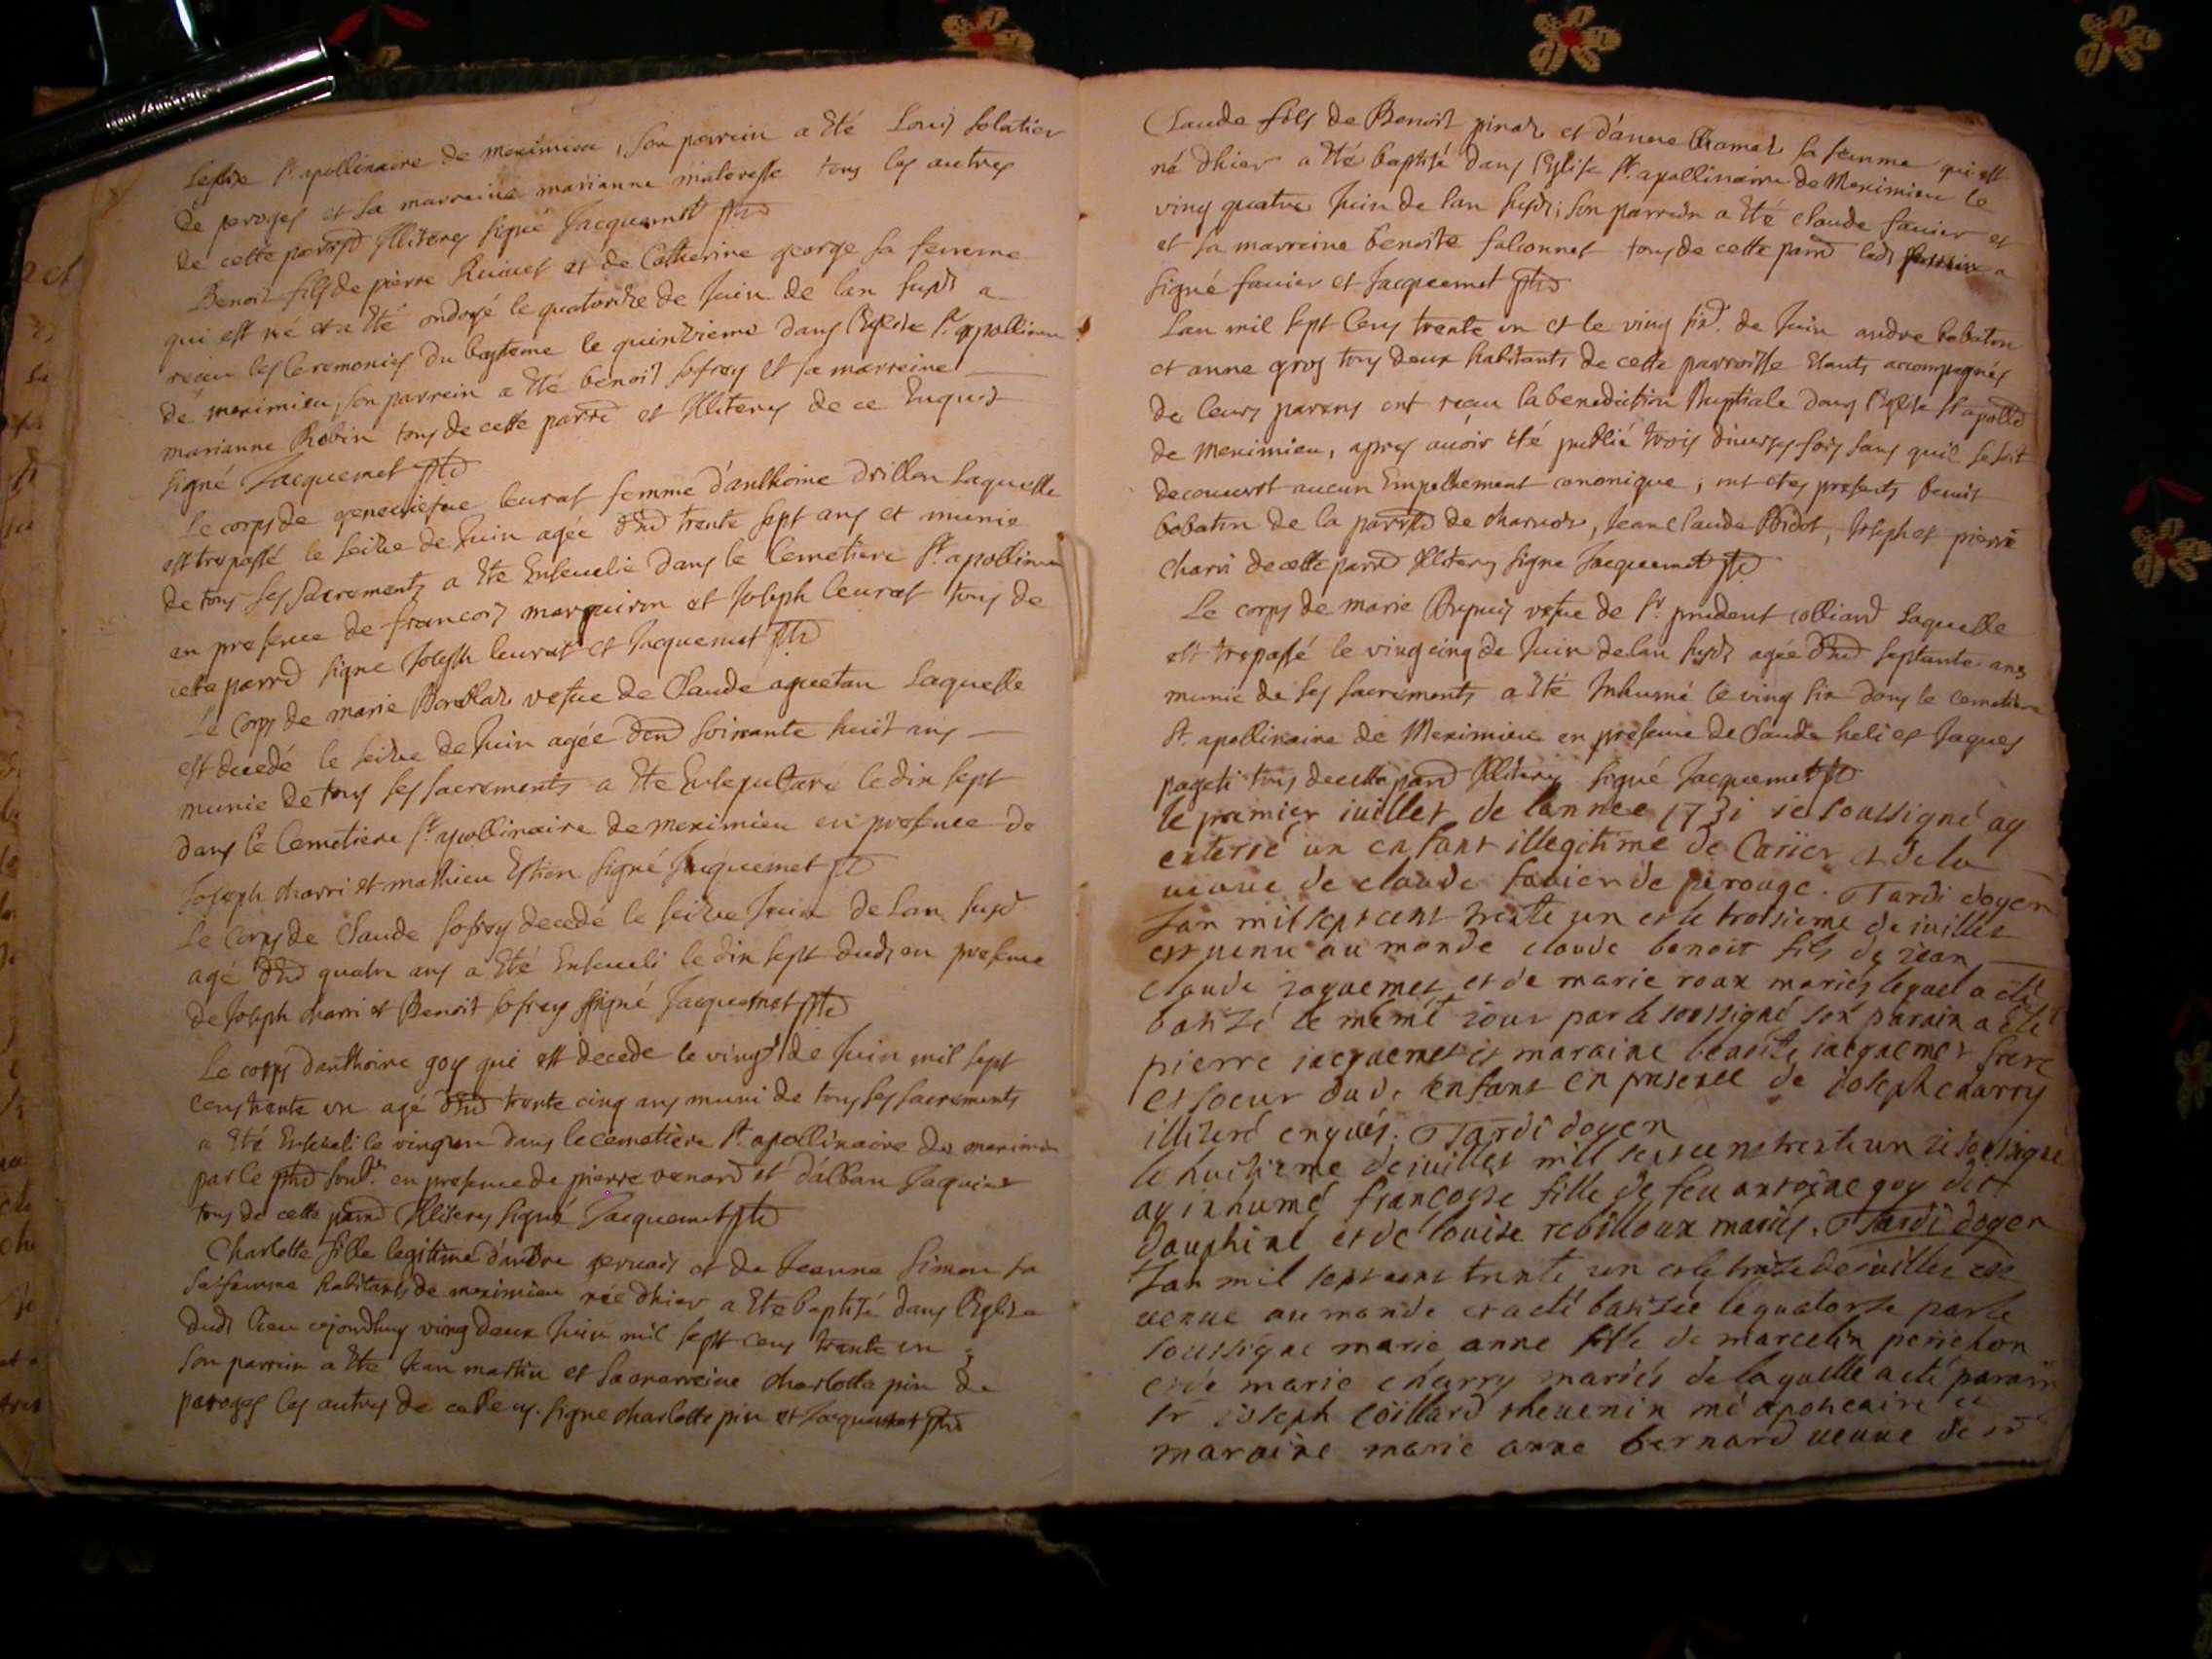 Leglise St. apollinaire de meximieu, son parrein a Eté Louis
de peroges et sa marreine marianne tous les autres
de cette parrd Illiteres signé Jacquemet ptre
Benoit fils de pierre et de Catherine george sa femme
qui est né et a Eté ondoyé le quatorze de Juin de lan susdt a
recu les Ceremonies du bapteme le quinzieme dans l'Eglise St. appollinare
de meximieu, son parrein a Eté benoit sofrey et sa marreine
marianne Robin tous de cette parrd et Illiteres de ce Enquis
signé Jacquemet ptre
Le corps de geneuiefue leurat femme d'anthoine drillon Laquelle
est trepassé le seize de Juin agée denv trente sept ans et munie
de tous ses sacrements a Eté Enseuelie dans le Cemetiere St. apollinare
en presence de francois marquiron et Joseph leurat tous de
cette parrd signe Joseph leurat et Jacquemet ptre
Le Corps de marie vefue de Claude aguetan Laquelle
est decedé le seize de Juin agée denv soixante huit ans
munie de tous ses sacrements a Eté Ensepulture le dix sept
dans le Cemetiere St. apollinaire de meximieu en presence de
Joseph charri et mathieu Estien signé Jaquemet ptre
Le Corps de Claude sofrey decedé le seize Juin de Lan susd
agé denv quatre ans a Eté Enseueli le dix sept dudt en presence
de Joseph charri et Benoit sofrey signé Jacquemet ptre
Le corps danthoine goy qui est decede le vingt de Juin mil sept
cens trente un agé denv trente cinq ans muni de tous ses sacrements
a Eté Enseueli le vingun dans le cemetiere St. apollinaire de meximieu
par le ptre en presence de pierre venard et d'alban Jaquier
tous de cette parrd Illiteres signé Jacquemet ptre
Charlotte fille legitime d'andre geruais et de Jeanne Simon sa
sa femme habitants de meximieu née dhier a Eté baptisé dans l'Eglise
dudt lieu cejourdhuy ving deux Juin mil sept cens trente un ;
son parrein a Eté Jean mathieu et sa marreine charlotte pin de
peroges les autres de signe charlotte pin et Jacquemet ptre
Claude fils de Benoit pinat et d'anne sa femme qui est
né dhier a Eté baptisé dans l'Eglise St. apollinaire de Meximieu le
ving quatre Juin de lan susdt ; son parrein a Eté claude fauier et
et sa marreine benoite falconnet tous de cette parrd ledt a
signé fauier et Jacquemet ptre
Lan mil sept Cens trente un et le ving six de Juin andre bobaton
et anne gros tous deux habitants de cette parroisse Etants accompagnés
de leurs parens ont recu la benediction Nuptiale dans l'Eglise St apolld
de meximieu, apres auoir été publié trois diuerses fois sans quil se soit
decouuert aucun Empechement canonique ; ont etes presents benoit
bobaton de la parrd de charnoz, Jean claude Bidot, Joseph et pierre
charri de cette parrd Illiteres signe Jacquemet ptre
Le corps de marie Dupuis vefue de Sr. prudent colliard Laquelle
est trepassé le vingcinq de Juin de lan susdt agée denv septante ans
munie de ses sacrements a Eté Inhumé le ving six dans le cemetiere
St. apollinaire de Meximieu en presence de Claude heli et Jaques
pageti tous de cette parrd Illiteres signé Jacquemet ptre
le premier iuillet de lannee 1731 ie soussigné ay
enterré un enfant illegitime de Carier et de la
ueuue de claude fauier de perouge. Tardi doyen
Lan mil sept cent trente un et le troisieme de iuillet
est uenu au monde claude benoit fils de iean
claude iaquemet et de marie roux mariés lequel a eté
batizé le méme iour par le soussigné son parain a Eté
pierre iacquemet et maraine benoite iacquemet frere
et soeur dudt enfant en presence de ioseph charry
illiteré enquis. Tardi doyen
le huitieme de iuillet mill sept cent trente un ie soussigné
ay inhumé francoise fille de feu antoine goy dit
dauphiné et de louise rebilloux mariés. Tardi doyen
Lan mil sept cent trente un et le treize de iuillet est
uenue au monde et a eté batizée le quatorze par le
soussigné marie anne fille de marcelin perichon
et de marie charry mariés de laquelle a eté parain
sr ioseph coillard theuenin mé apoticaire et
maraine marie anne bernard ueuue de sr